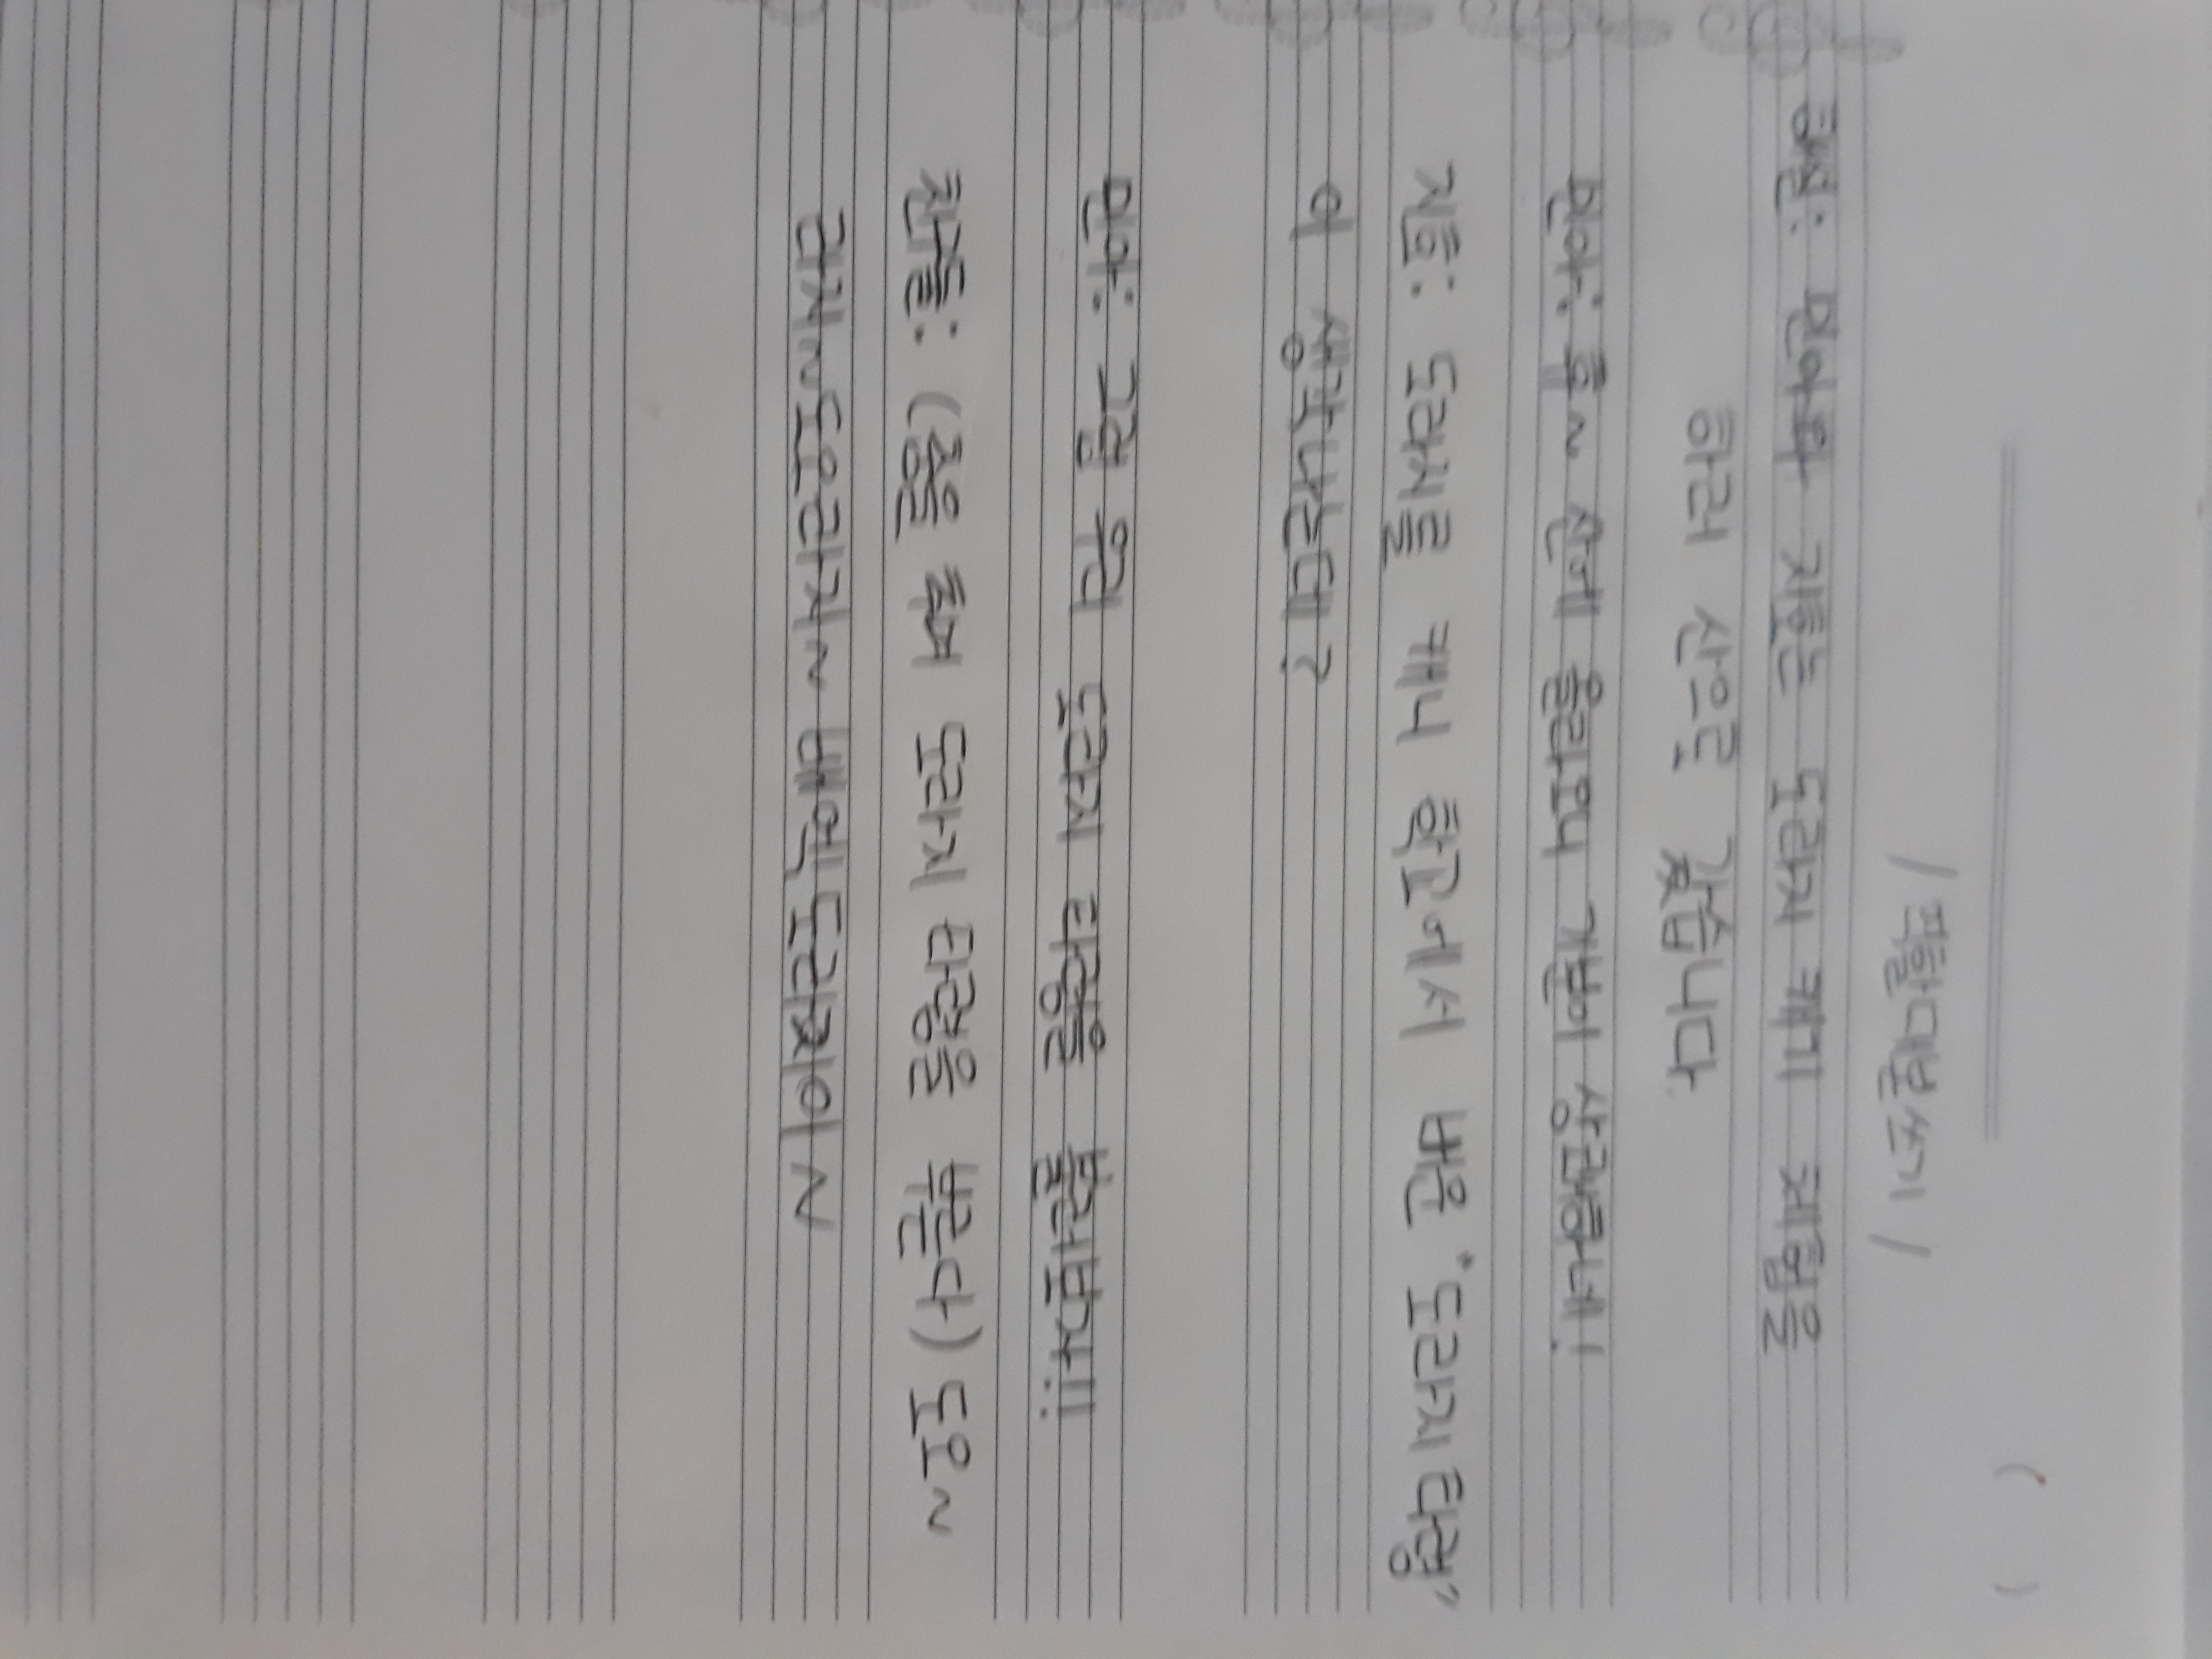 / 역할대본쓰기 /
해설: 민아와 지훈는 도라지 캐기 체험을
하러 산으로 갔습니다.
민아: 흠~ 산에 올라오니 기분이 상쾌하네!
지훈: 도라지를 캐니 학교에서 배운 "도라지타령"
이 생각나는데?
민아: 그럼 우리 도라지 타령을 불러보자!!
친구들: (춤을 추며 도라지 타령을 부른다) 도오~
라지~도오라지~ 배액도라지이~